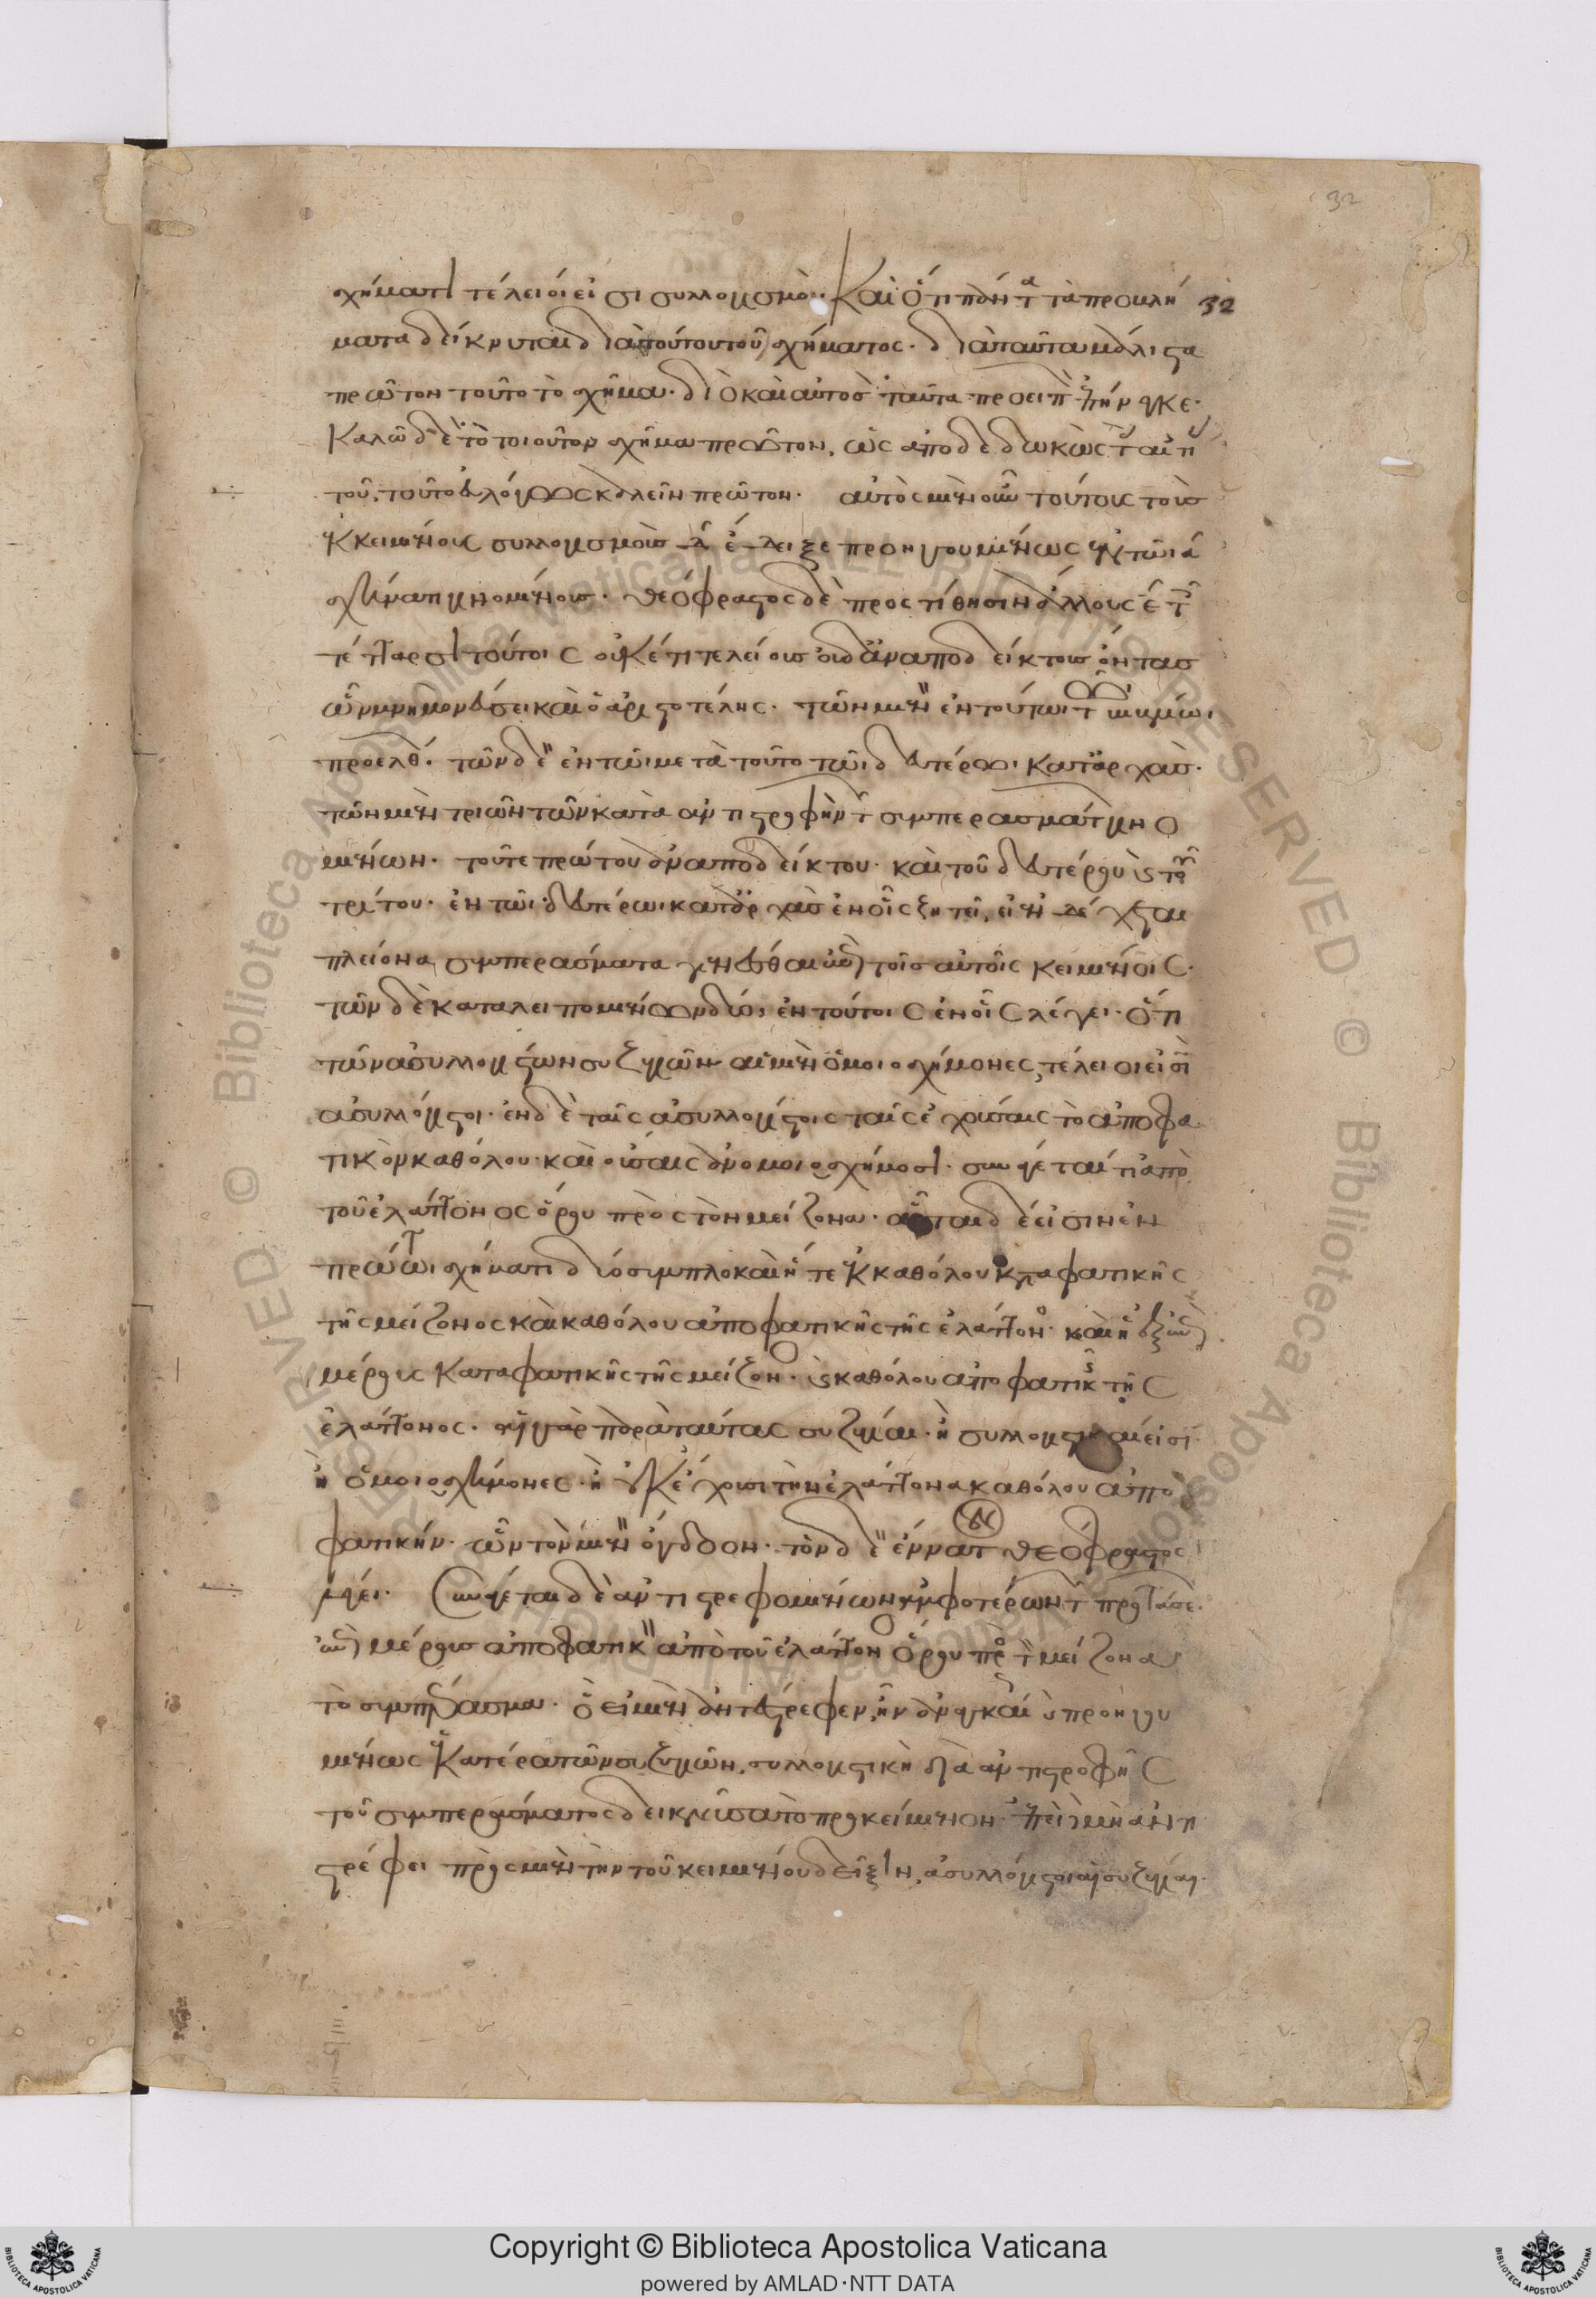 32
σχήματι τέλειοί εἰσι συλλογισμοί. Καὶ ὅτι πάντα τὰ προβλή 32
ματα δείκνυται διὰ τούτου τοῦ σχήματος. διὰ ταῦτα μάλιστα
πρῶτον τοῦτο τὸ σχῆμα. διὸ καὶ αὐτὸς ταῦτα προειπὼν ἐπήνεγκε.
Καλῶ δὲ τὸ τοιοῦτον σχῆμα πρῶτον, ὡς ἀποδεδωκὼς τὴν αἰτίαν
τοῦ τοῦτο εὐλόγως καλεῖν πρῶτον. αὐτὸς μὲν οὖν τούτους τοὺς
ἐκκειμένους συλλογισμοὺς δ ἔδειξε προηγουμένως ἐν τῶι α
σχήματι γινομένους. Θεόφραστος δὲ προστίθησιν ἄλλους ε τοῖς
τέτταρσι τούτοις οὐκέτι τελείους οὐδ' ἀναποδείκτους ὄντας
ὧν μνημονεύσει καὶ ὁ Ἀριστοτέλης. τῶν μὲν ἐν τούτωι τῶι βιβλίωι
προελθών. τῶν δὲ ἐν τῶι μετὰ τοῦτο τῶι δευτέρωι κατ' ἀρχάς.
τῶν μὲν τριῶν τῶν κατὰ ἀντιστροφὴν τῶν συμπερασμάτων γινο
μένων. τοῦ τε πρώτου ἀναποδείκτου. καὶ τοῦ δευτέρου καὶ τοῦ
τρίτου. ἐν τῶι δευτέρωι κατ' ἀρχὰς ἐν οἷς ζητεῖ, εἰ ἐνδέχεται
πλείονα συμπεράσματα γενέσθαι ἐν τοῖς αὐτοῖς κειμένοις.
τῶν δὲ καταλειπομένων δύο, ἐν τούτοις ἐν οἷς λέγει. ὅτι
τῶν ἀσυλλογίστων συζυγιῶν αἱ μὲν ὁμοιοσχήμονες, τέλειοί εἰσιν
ἀσυλλόγιστοι. ἐν δὲ ταῖς ἀσυλλογίστοις ταῖς ἐχούσαις τὸ ἀποφα
τικὸν καθόλου. καὶ οὔσαις ἀνομοιοσχήμοσι. συνάγεταί τι ἀπὸ
τοῦ ἐλάττονος ὅρου πρὸς τὸν μείζονα. αὗται δέ εἰσιν ἐν
πρώτωι σχήματι δύο συμπλοκαὶ ἥ τε ἐκ καθόλου καταφατικῆς
τῆς μείζονος καὶ καθόλου ἀποφατικῆς τῆς ἐλάττονος. καὶ ἡ ἐξ ἐπὶ
μέρους καταφατικῆς τῆς μείζονος. καὶ καθόλου ἀποφατικῆς τῆς
ἐλάττονος. αἱ γὰρ παρὰ ταύτας συζυγίαι. ἢ συλλογιστικαί εἰσιν.
ἢ ὁμοιοσχήμονες. ἢ οὐκ ἔχουσι τὴν ἐλάττονα καθόλου ἀπο
φατικήν. ὧν τὸν μὲν ὄγδοον. τὸν δὲ ἔννατον Θεόφραστος
λέγει. Συνάγεται δὲ ἀντιστρεφομένων ἀμφοτέρων τῶν προτάσεων
ἐπὶ μέρους ἀποφατικὸν ἀπὸ τοῦ ἐλάττονος ὅρου πρὸς τὸν μείζονα
τὸ συμπέρασμα. ὃ εἰ μὲν ἀντέστρεφεν, ἦν ἂν καὶ προηγου
μένως ἑκατέρα τῶν συζυγιῶν, συλλογιστικὴ διὰ ἀντιστροφῆς
τοῦ συμπεράσματος δεικνῦσα τὸ προκείμενον. ἐπεὶ δὲ μὴ ἀντι
στρέφει πρὸς μὲν τὴν τοῦ κειμένου δεῖξιν, ἀσυλλόγιστοι αἱ συζυγίαι.